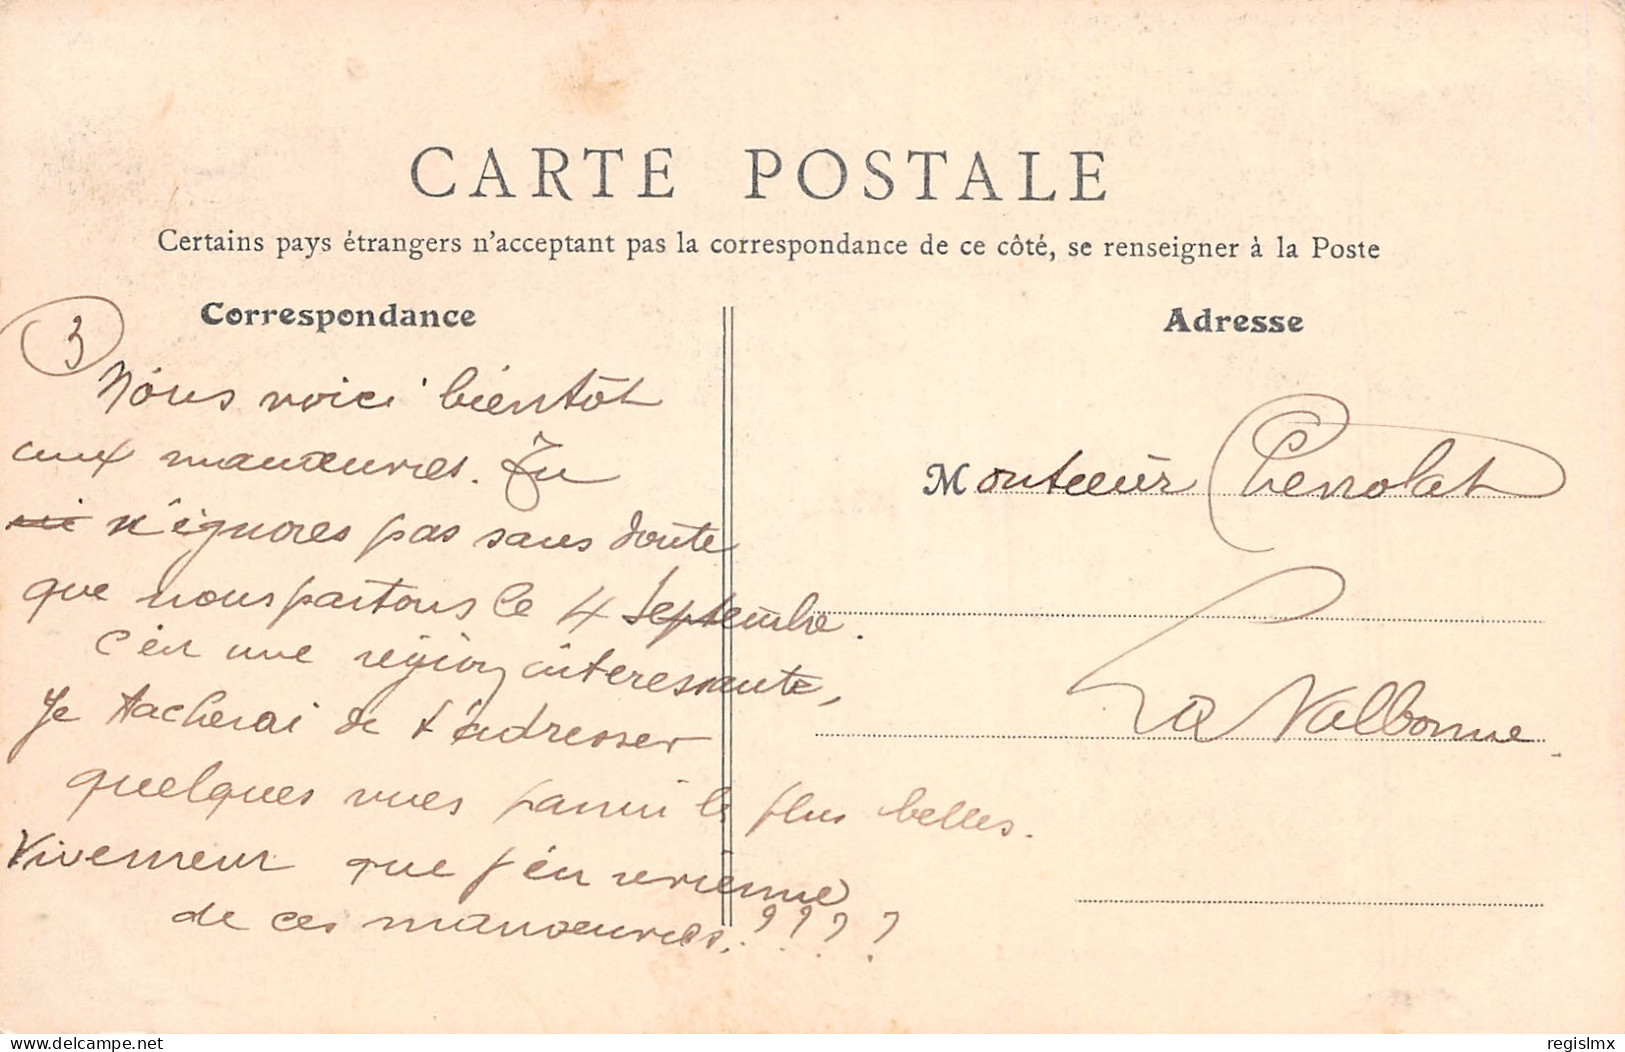 CARTE POSTALE
Certains pays étrangers n'acceptant pas la correspondance de ce côté, se renseigner à la Poste
Correspondance
3
Nous voici bientôt
aux manœuvres. Tu
n'ignores pas sans doute
que nous partons le 4 Septembre.
c'en une région interessante,
Je tacherai de t'adresser
quelques vues parmi le plus belles.
Vivement que j'en revienne
de ces manœuvres. ????
Adresse
Monsieur
La Valbonne
delcampe.net
regislmx